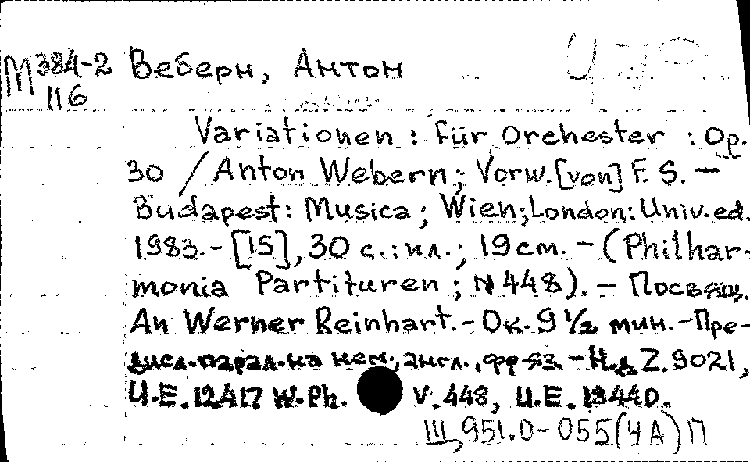 М 384-2
116
Веберн, Антон
Variationen : für Orchester : Op.
30 / Anton Webern; Vorw. [von] F. S. —
Budapest: Musica; Wien; London: Univ. ed.
1983. - [15], 30 с.: ил.; 19 см. - (Philhar-
monia Partituren; N 448). - Посвящ.
An Werner Reinhart. - Ок. 9 ½ мин. - Пре-
дисл. парал. на нем., англ., фр. яз. - Н.д. Z. 9021,
U.E. 12417 W. Ph. V. 448, U.E. 13440.
III, 951.0-055(4А)П